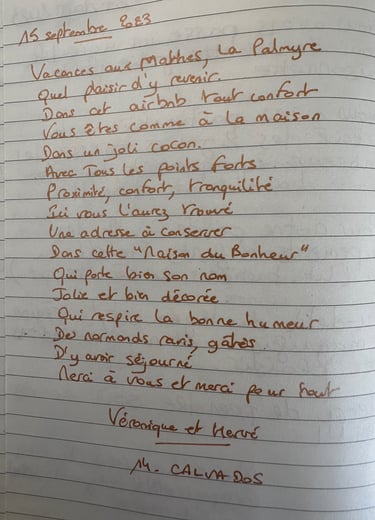 15 septembre 2023
Vacances aux Mathes, La Palmyre
Quel plaisir d'y revenir.
Dans cet airbnb tout confort
Vous êtes comme à la maison
Dans un joli cocon.
Avec Tous les points forts
Proximité, confort, tranquilité
Ici vous l'aurez trouvé
Une adresse à conserver
Dans cette "Maison du Bonheur"
Qui porte bien son nom
Jolie et bien décorée
Qui respire la bonne humeur
Des normands ravis, gâtés
D'y avoir séjourné
Merci à vous et merci pour tout
Véronique et Hervé
14. CALVADOS